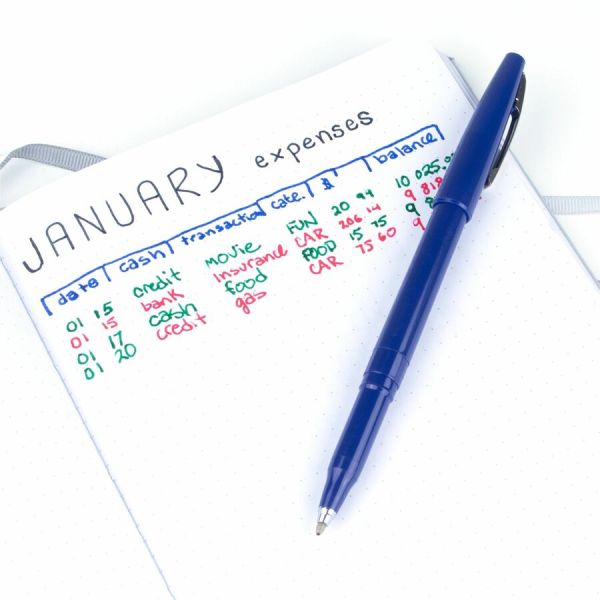 JANUARY expenses
date cash transaction cate. $ balance
01 15 credit movie FUN 20 94 10 025.
01 15 bank insurance CAR 206 14 9 818
01 17 cash food FOOD 15 75 9 8
01 20 credit gas CAR 75 60 9